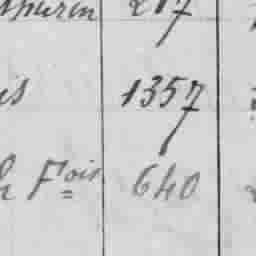 thurin 217
is 1357
h Fois 640